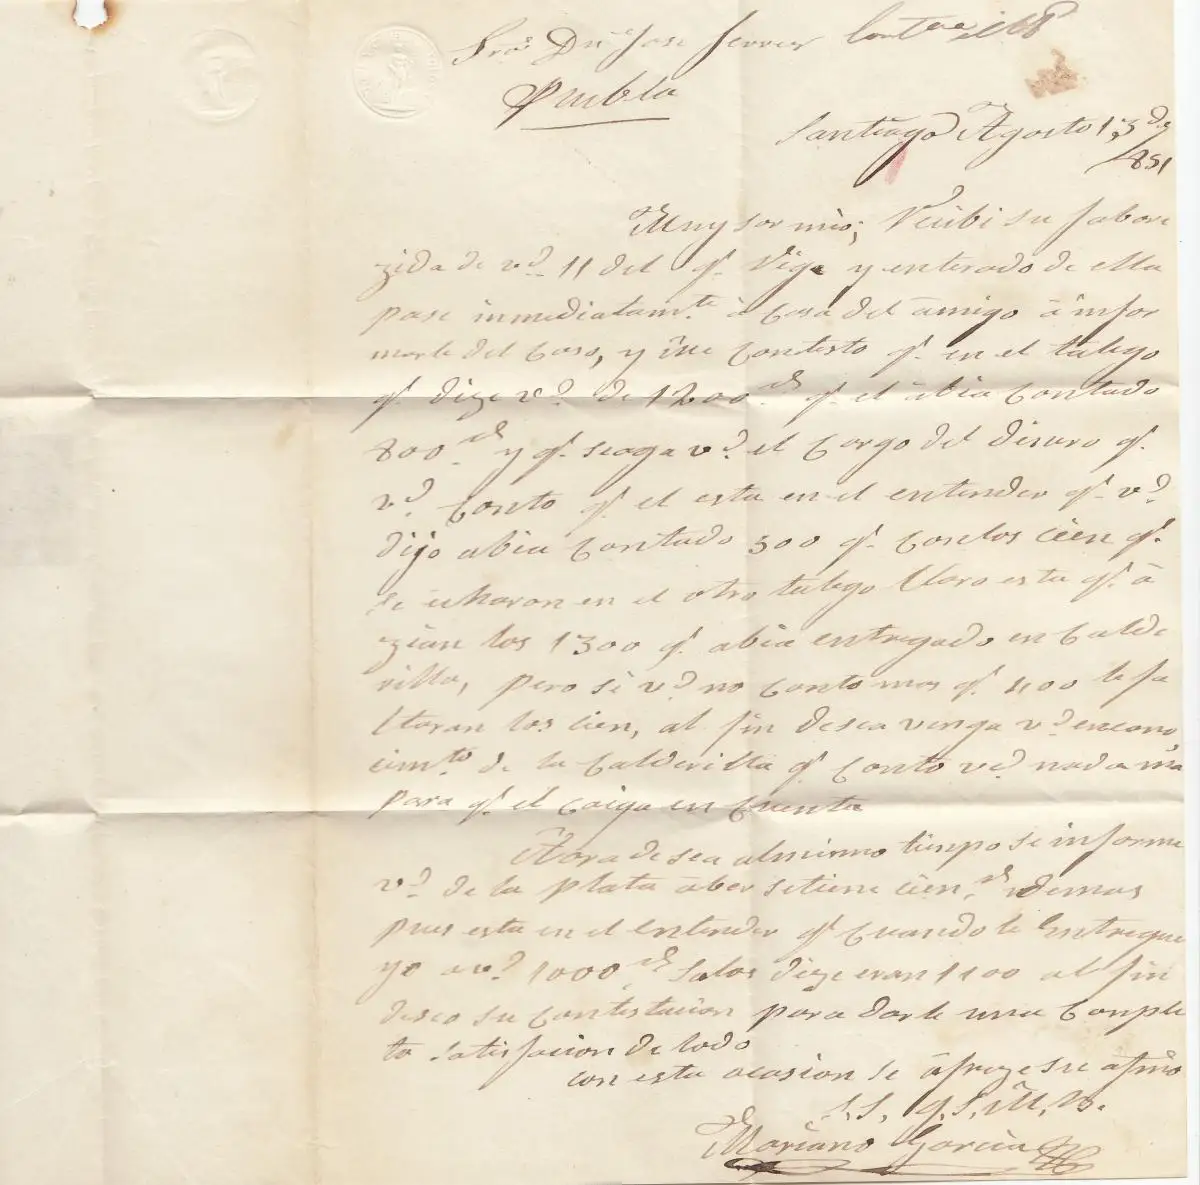 Sr. Dn. Jose Ferrer
Puebla
Santiago Agosto 13 de
1851
Muy sor mio; Recibi su fabore
zida de vd. 11 del q. Rige y enterado de ella
pase inmediatamte. à Casa del àmigo à infor
marle del Caso, y me Contesto q. en el talego
q. dize vd. de 1200 rs. q. el àbia Contado
800 rs. y q. seaga vd. el Cargo del dinero q.
vd. Conto q. el esta en el entender q. vd.
dijo abia Contado 500 q. Con los cien q.
se echaron en el otro talego Claro esta q. à
zian los 1300 q. abia entregado en Calde
rilla, pero si vd. no Conto mas q. 400 le fa
ltaran los cien, al fin desea venga vd. en cono
cimto. de la Calderilla q. Conto vd. nada ma
para q. el Caiga en Cuenta
Aora desea al mismo tienpo se informe
vd. de la plata àber si tiene cien rs. demas
pues esta en el Entender q. Cuando le Entregue
yo a vd. 1000 rs. Salos dize eran 1100 al fin
deseo su Contestacion para darle una Conple
ta satisfacion de todo
con esta ocasion se àfreze su afmo
S. S. q. S. M. B.
Mariano Garcia